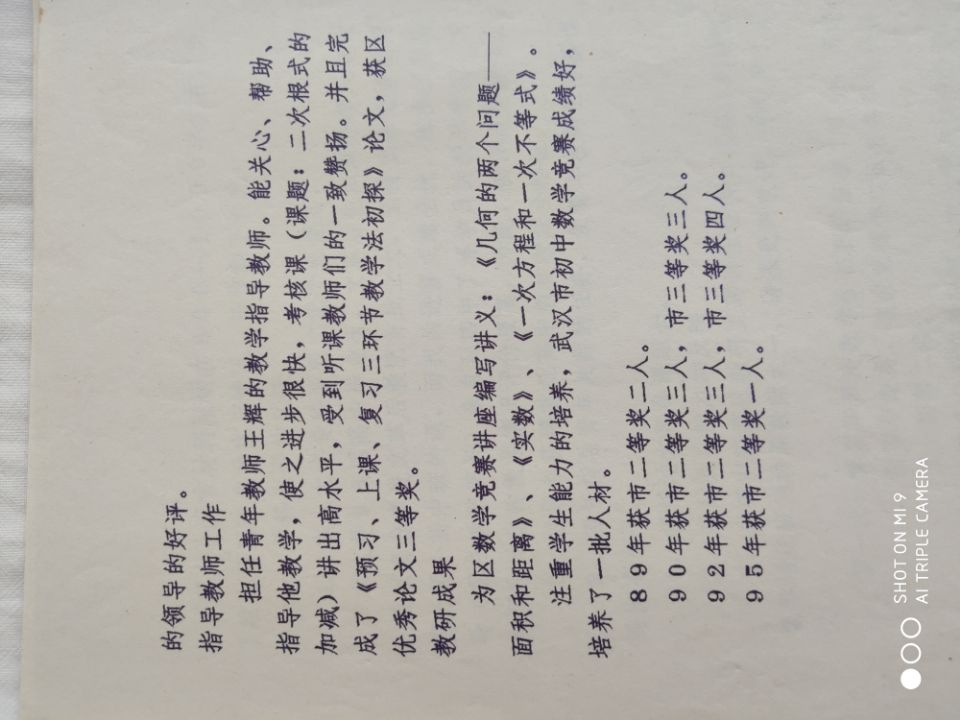 的领导的好评。
指导教师工作
担任青年教师王辉的教学指导教师。能关心、帮助、
指导他教学，使之进步很快，考核课（课题：二次根式的
加减）讲出高水平，受到听课教师们的一致赞扬。并且完
成了《预习、上课、复习三环节教学法初探》论文，获区
优秀论文三等奖。
教研成果
为区数学竞赛讲座编写讲义：《几何的两个问题——
面积和距离》、《实数》、《一次方程和一次不等式》。
注重学生能力的培养，武汉市初中数学竞赛成绩好，
培养了一批人材。
８９年获市二等奖二人。
９０年获市二等奖三人，市三等奖三人。
９２年获市二等奖三人，市三等奖四人。
９５年获市二等奖一人。
SHOT ON MI 9
AI TRIPLE CAMERA